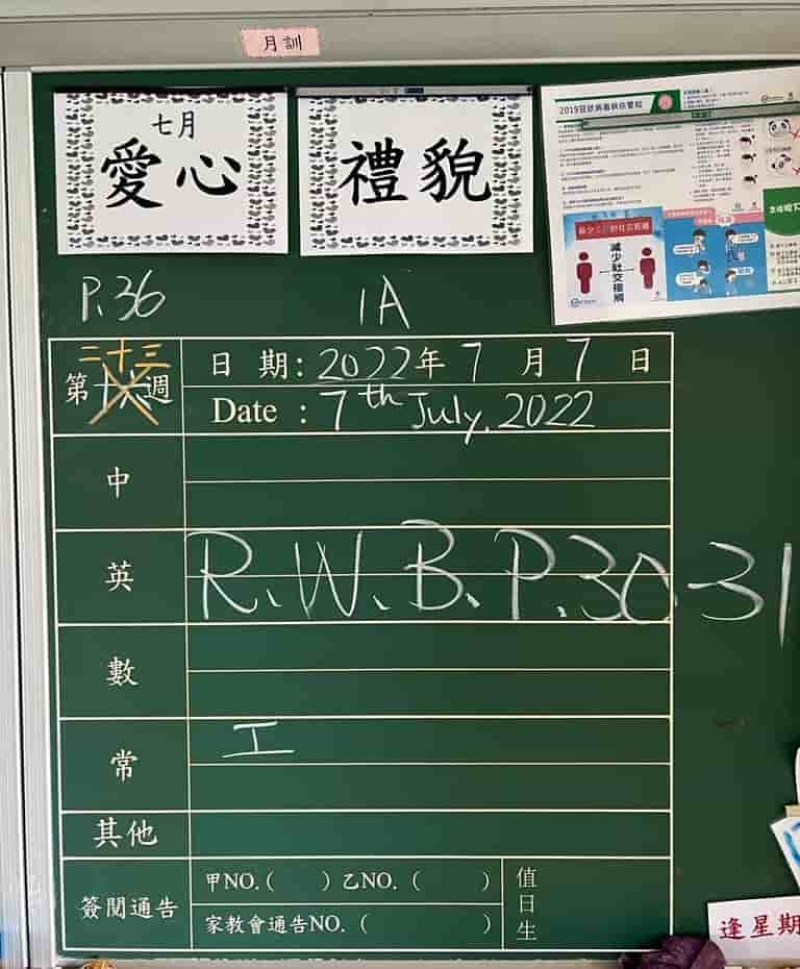 月訓
七月
愛心
禮貌
2019冠狀病毒病你要知
減少社交接觸
P.36
1A
二十三
第十八週
日 期: 2022年 7 月 7 日
Date : 7th July, 2022
中
英
R、W、B、P.30-31
數
常
工
其他
簽閱通告
甲NO.( ) 乙NO. ( )
家教會通告NO. ( )
值日生
逢星期